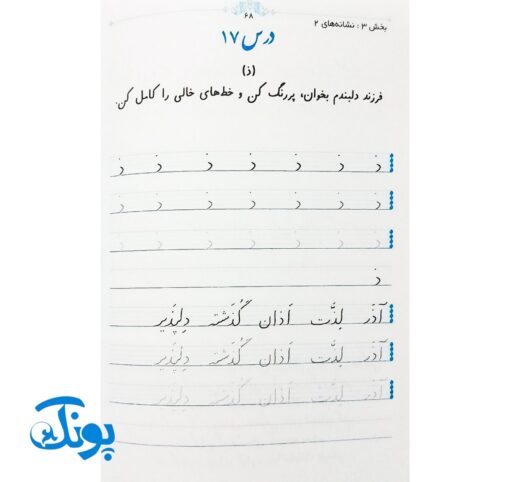 ۶۸
بخش ۳ : نشانه‌های ۲
درس ۱۷
(ذ)
فرزند دلبندم بخوان، پررنگ کن و خط‌های خالی را کامل کن.
ذ ذ ذ ذ ذ ذ ذ
ذ ذ ذ ذ ذ ذ ذ
ذ ذ ذ ذ ذ ذ ذ
ذ
آذَر لِذَّت اَذان گُذَشته دِلپَذیر
آذَر لِذَّت اَذان گُذَشته دِلپَذیر
آذَر لِذَّت اَذان گُذَشته دِلپَذیر
پونک